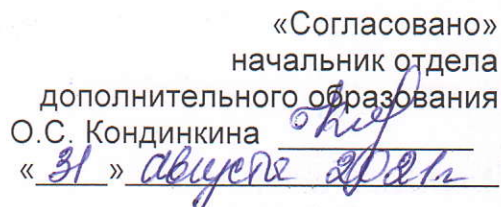 «Согласовано»
начальник отдела
дополнительного образования
О.С. Кондинкина
«31» августа 2021г